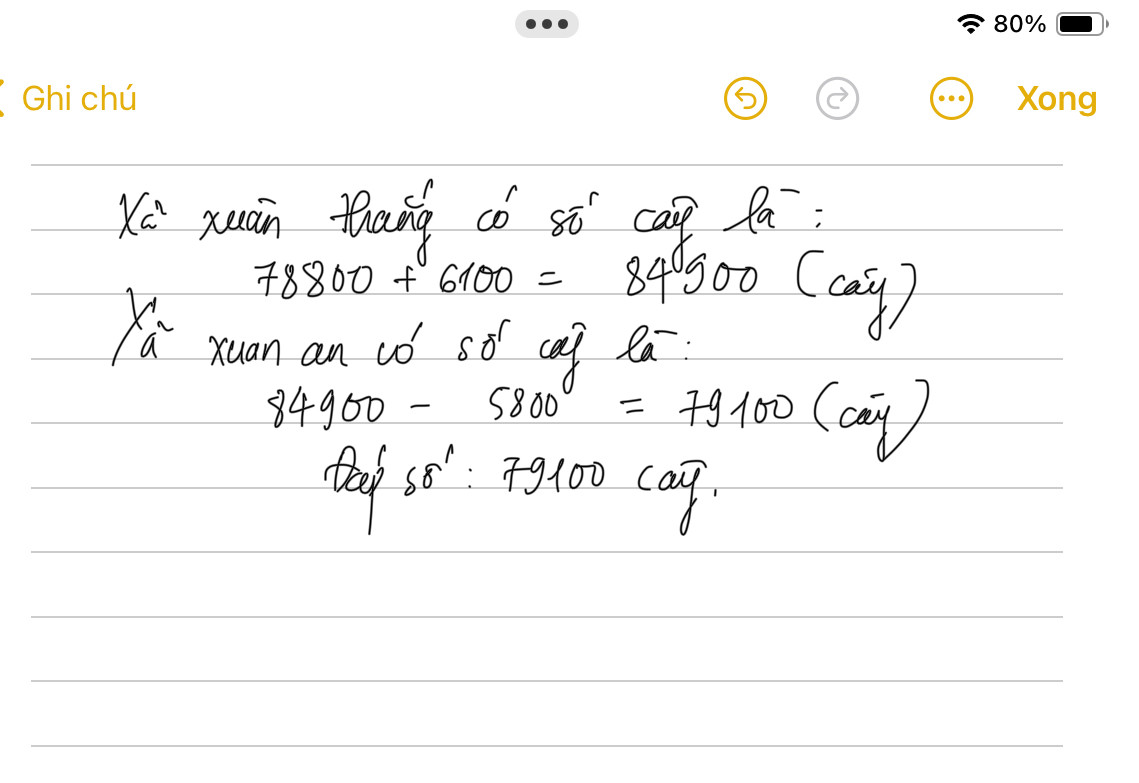 80%
Ghi chú
Xong
Xã xuân thắng có số cây là:
78800 + 6100 = 84900 (cây)
Xã xuan an có số cây là:
84900 - 5800 = 79100 (cây)
Đáp số: 79100 cây.